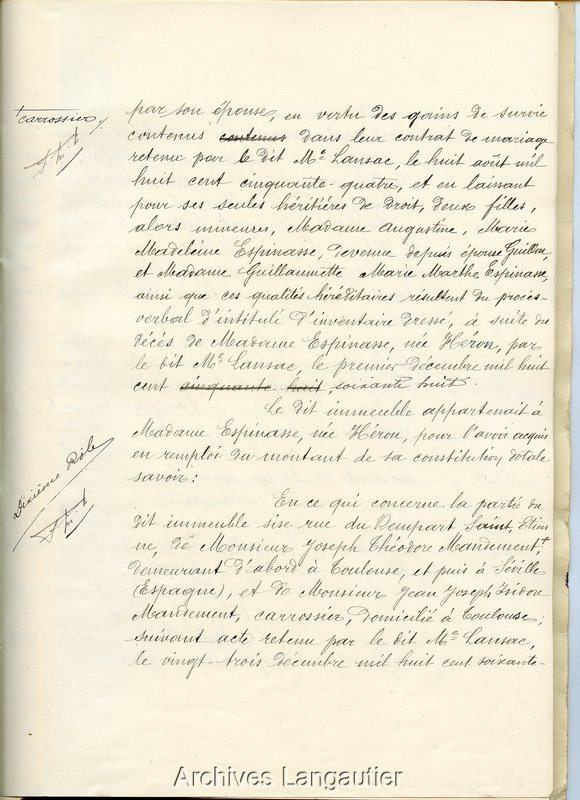 par son épouse, en vertu des gains de survie
+ carrossier,
contenus contenus dans leur contrat de mariage
retenu par le dit Me Lansac, le huit août mil
huit cent cinquante-quatre, et en laissant
pour ses seules héritières de droit, deux filles,
alors mineures, Madame Augustine, Marie
Madeleine Espinasse, devenue depuis épouse Guillon,
et Madame Guillaumette Marie Marthe Espinasse,
ainsi que ces qualités héréditaires résultent du procès-
verbal d'intitulé d'inventaire dressé, à suite du
décès de Madame Espinasse, née Héron, par
le dit Me Lansac, le premier décembre mil huit
cent cinquante huit, soixante huit.
Le dit immeuble appartenait à
Madame Espinasse, née Héron, pour l'avoir acquis
en remploi du montant de sa constitution dotale
savoir:
Dixième Rôle
En ce qui concerne la partie du
dit immeuble sise rue du Rempart Saint, Etien
ne, de Monsieur Joseph Théodore Mandement, +
demeurant d'abord à Toulouse, et puis à Séville
(Espagne), et de Monsieur Jean Joseph Isidore
Mandement, carrossier, domicilié à Toulouse;
suivant acte retenu par le dit Me Lansac,
le vingt-trois décembre mil huit cent soixante-
Archives Langautier